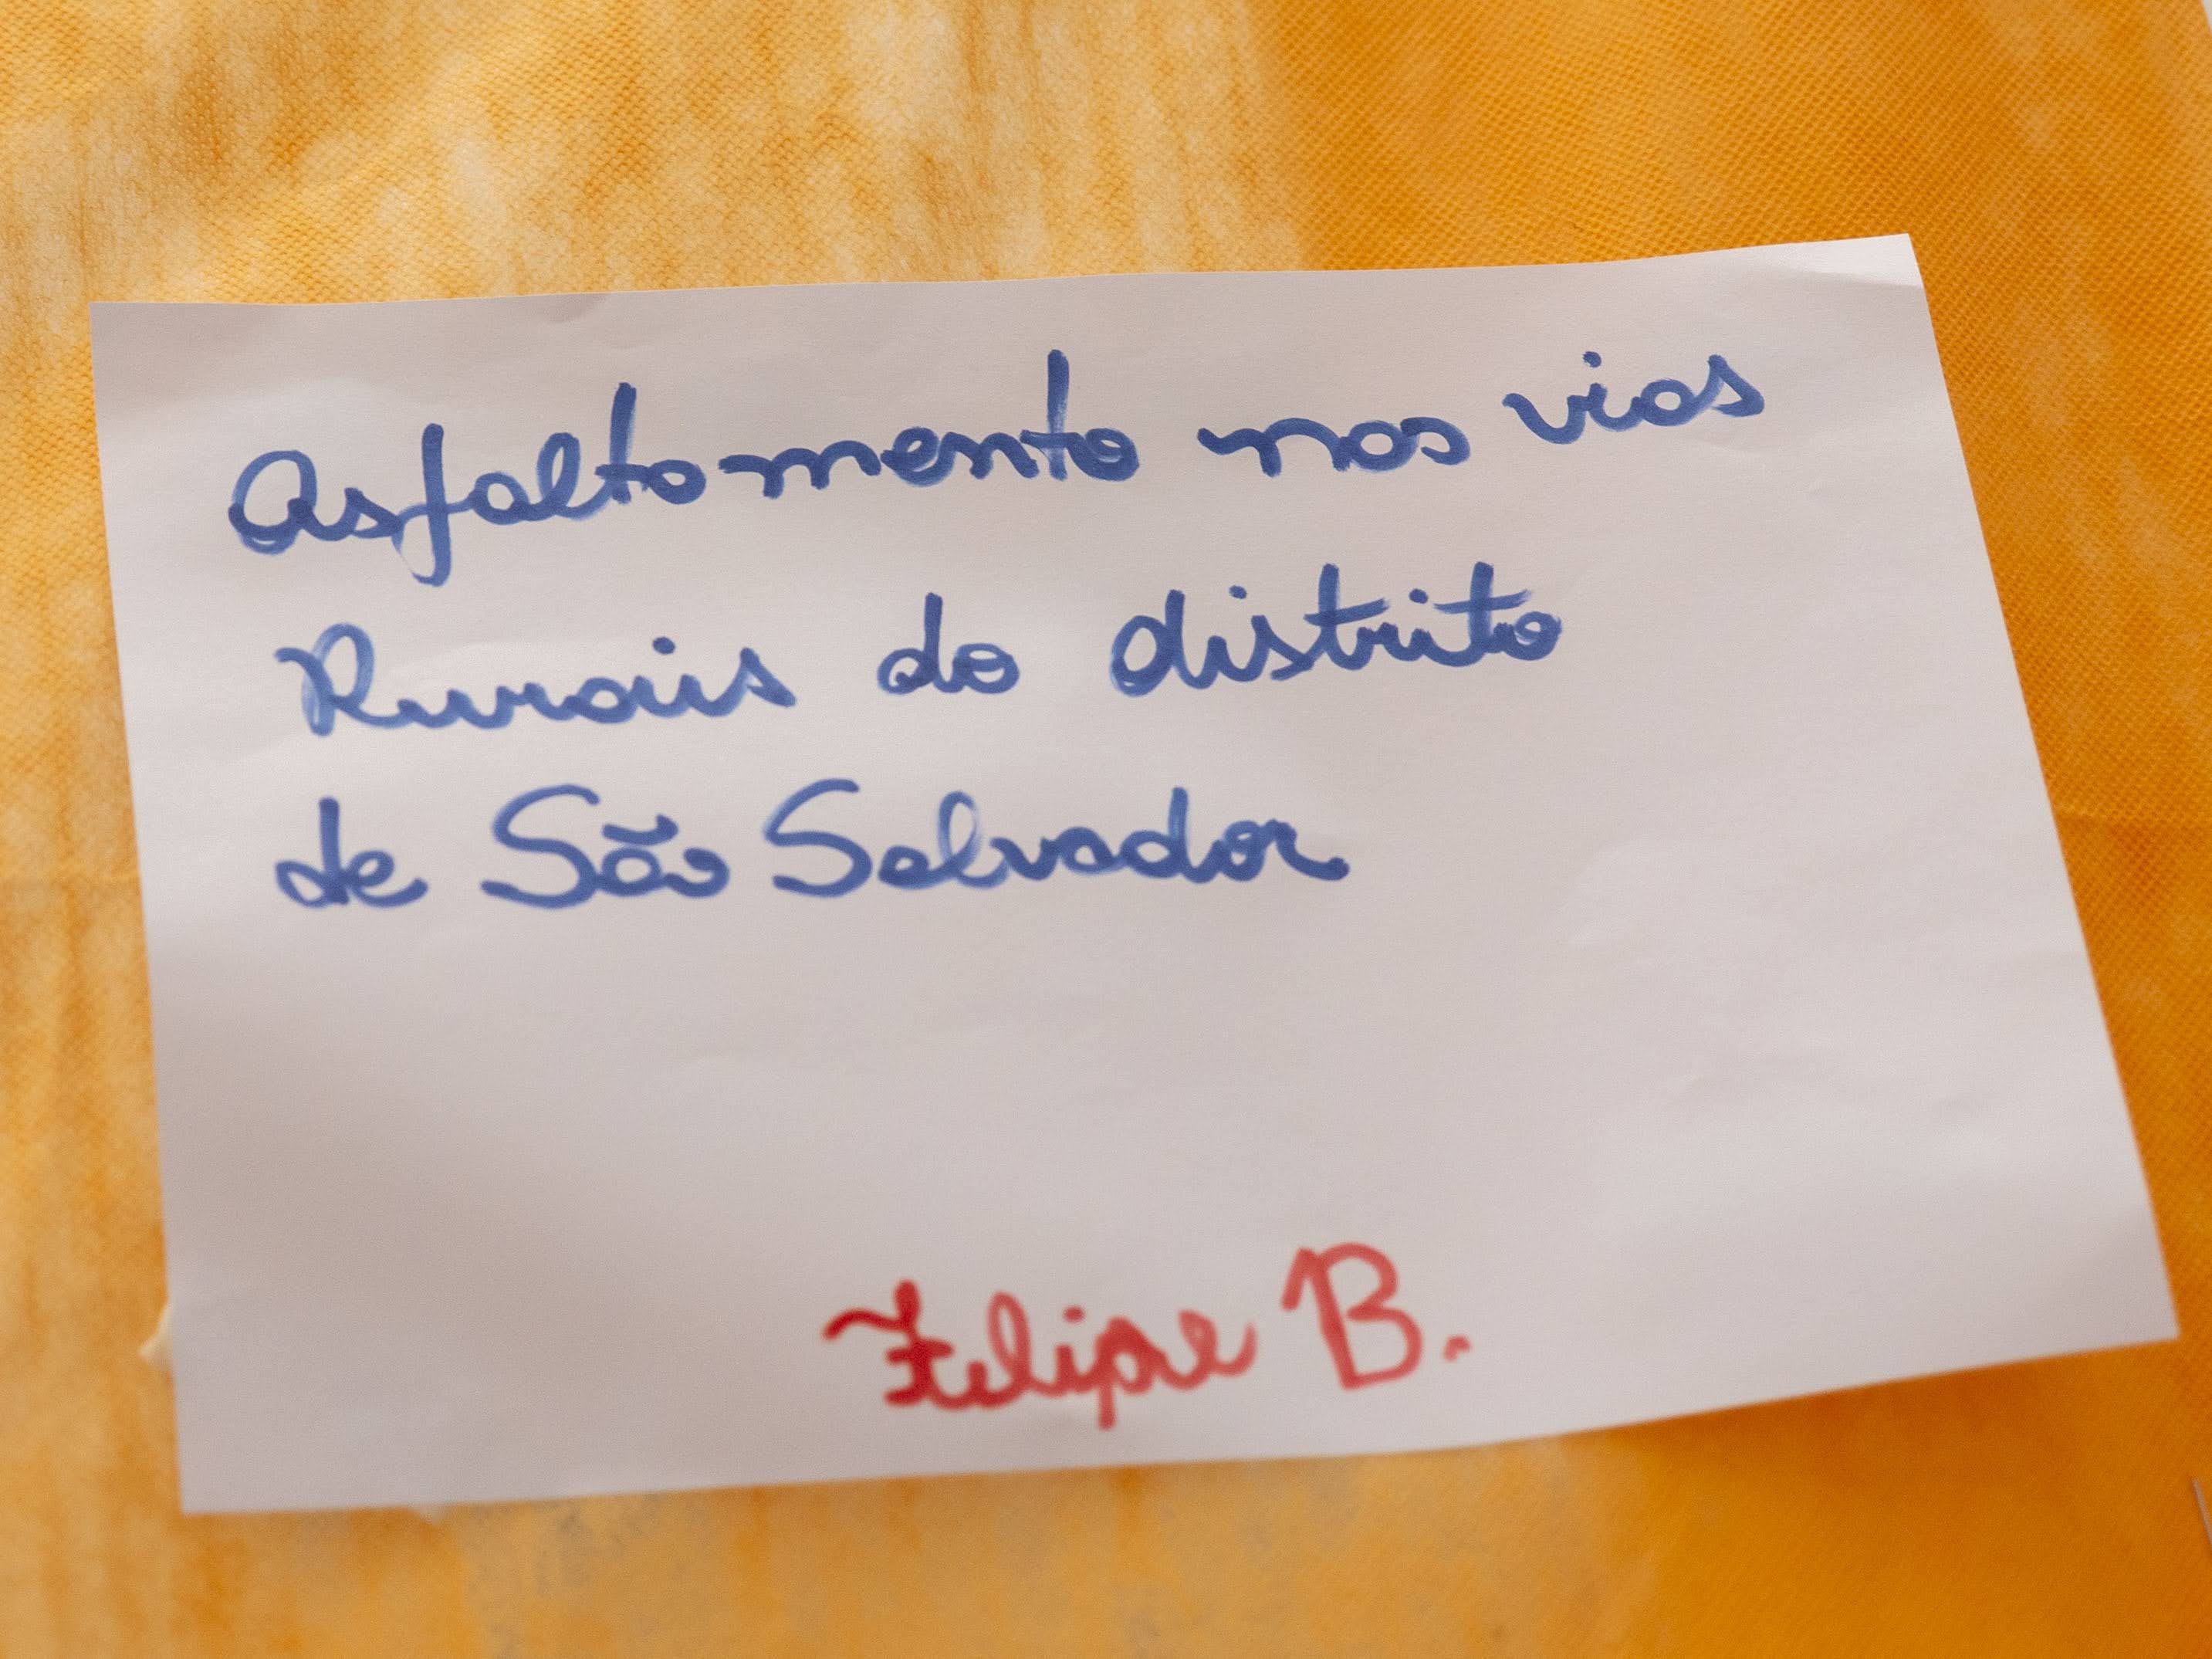 Asfaltamento nas vias
Rurais do distrito
de São Salvador
Felipe B.